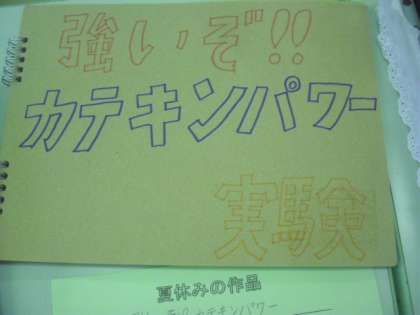 強いぞ!!
カテキンパワー
実験
夏休みの作品
カテキンパワー